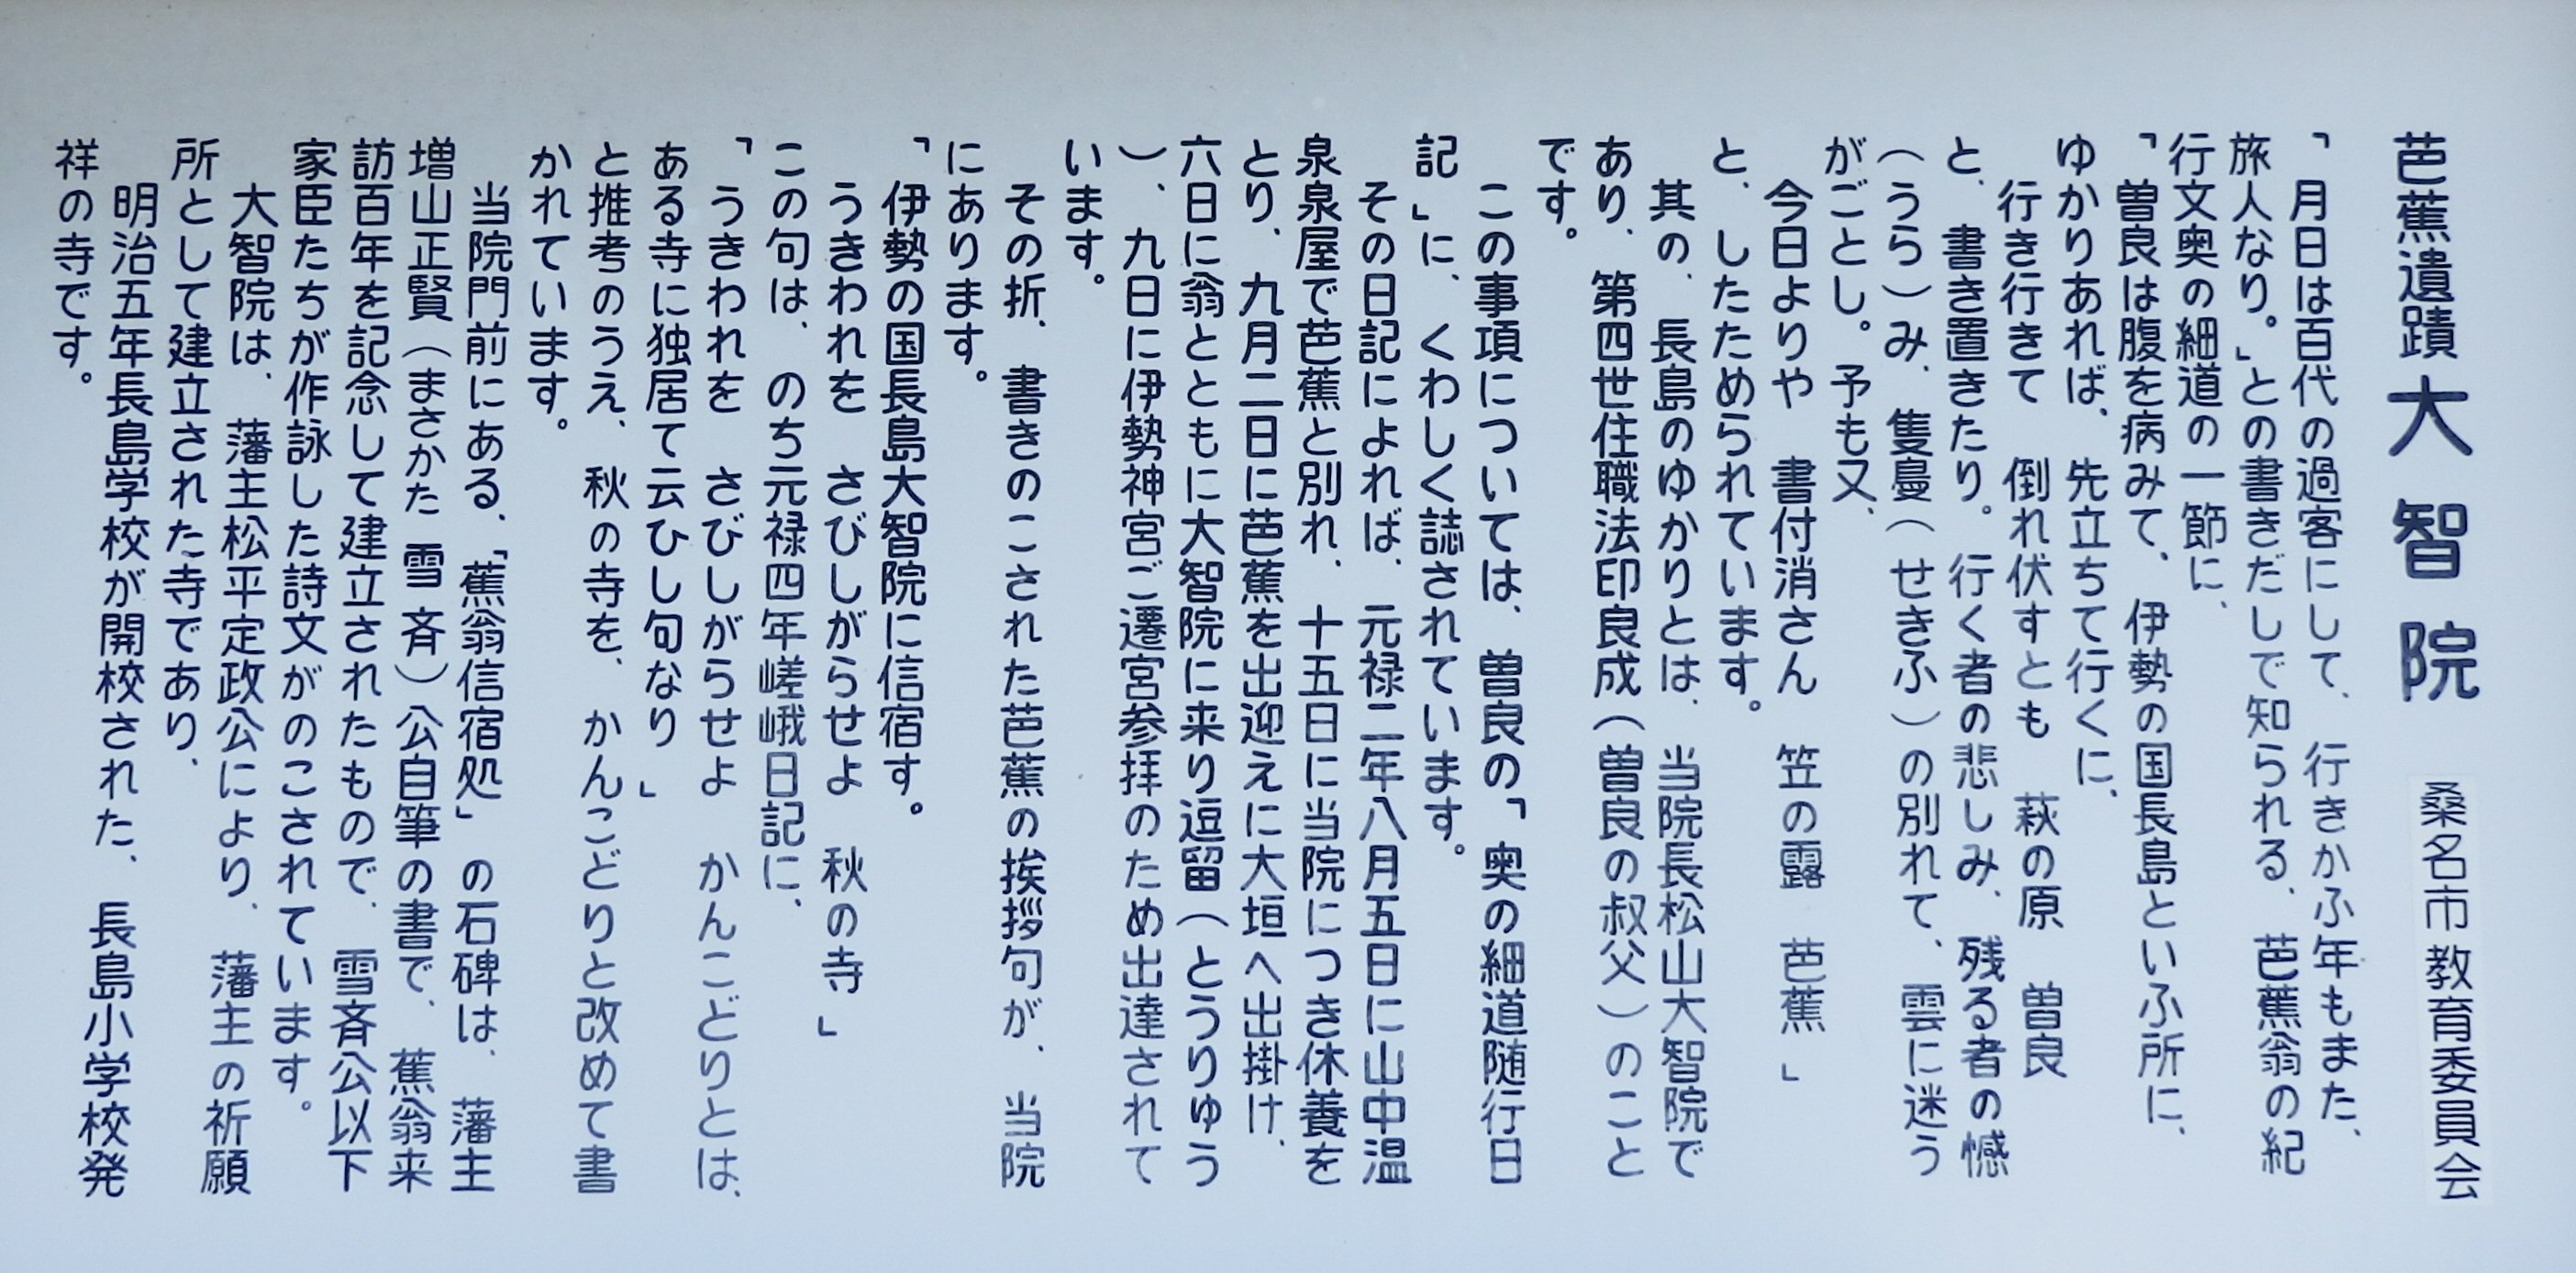 芭蕉遺蹟 大智院 桑名市教育委員会
「月日は百代の過客にして、行きかふ年もまた、
旅人なり。」との書きだしで知られる、芭蕉翁の紀
行文奥の細道の一節に、
「曽良は腹を病みて、伊勢の国長島といふ所に、
ゆかりあれば、先立ちて行くに、
行き行きて 倒れ伏すとも 萩の原 曽良
と、書き置きたり。行く者の悲しみ、残る者の憾
（うら）み、隻鳧（せきふ）の別れて、雲に迷う
がごとし。予も又、
今日よりや 書付消さん 笠の露 芭蕉」
と、したためられています。
其の、長島のゆかりとは、当院長松山大智院で
あり、第四世住職法印良成（曽良の叔父）のこと
です。
この事項については、曽良の「奥の細道随行日
記」に、くわしく誌されています。
その日記によれば、元禄二年八月五日に山中温
泉泉屋で芭蕉と別れ、十五日に当院につき休養を
とり、九月二日に芭蕉を出迎えに大垣へ出掛け、
六日に翁とともに大智院に来り逗留（とうりゅう
）、九日に伊勢神宮ご遷宮参拝のため出達されて
います。
その折、書きのこされた芭蕉の挨拶句が、当院
にあります。
「伊勢の国長島大智院に信宿す。
うきわれを さびしがらせよ 秋の寺」
この句は、のち元禄四年嵯峨日記に、
「うきわれを さびしがらせよ かんこどりとは、
ある寺に独居て云ひし句なり」
と推考のうえ、秋の寺を、かんこどりと改めて書
かれています。
当院門前にある、「蕉翁信宿処」の石碑は、藩主
増山正賢（まさかた 雪斉）公自筆の書で、蕉翁来
訪百年を記念して建立されたもので、雪斉公以下
家臣たちが作詠した詩文がのこされています。
大智院は、藩主松平定政公により、藩主の祈願
所として建立された寺であり、
明治五年長島学校が開校された、長島小学校発
祥の寺です。